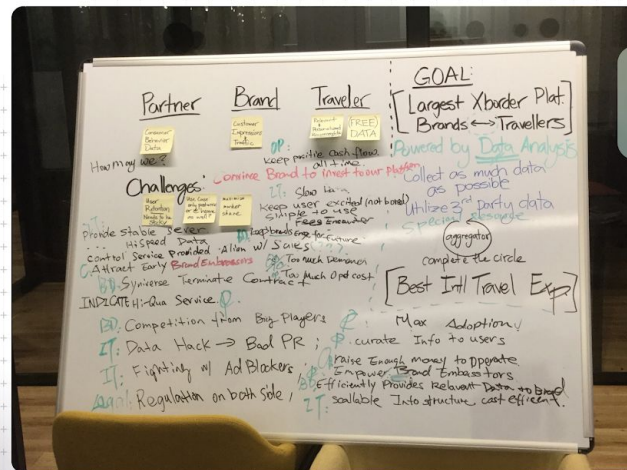 Partner
Brand
Traveler
Consumer
Behavior
Data
Customer
Impressions
&
Traffic
Relevant &
Personalized
FREE
DATA
How may we?
OP:
keep positive cash flow
all time
Convince Brand to invest to our platform
Challenges:
User
Retention
Needs to be
Sticky
maximize
market
share
IT: Slow
keep user excited (not bored)
simple to use
Fees Encounter
Provide stable sever
HiSpeed Data
Control Service Provided Align w/ Sales
future
Attract Early Brand Embassors
Too much Demand
BD: Syniverse Terminate Contract
Too Much Opet cost
INDICATE Hi-Qua Service
BD: Competition from Big Players
IT: Data Hack → Bad PR ;
IT: Fighting w/ Ad Blockers
Legal: Regulation on both side
GOAL:
[Largest Xborder Plat.
Brands ↔ Travellers]
Powered by Data Analysis
Collect as much data
as possible
Utilize 3rd party data
Special resource
aggregator
complete the circle
[Best Intl Travel Exp]
Max Adoption
P: curate Info to users
raise Enough money to Operate
Empower Brand Embassators
Efficiently Provides Relevant Data to Brand
IT: scallable Infostructure cost efficent.